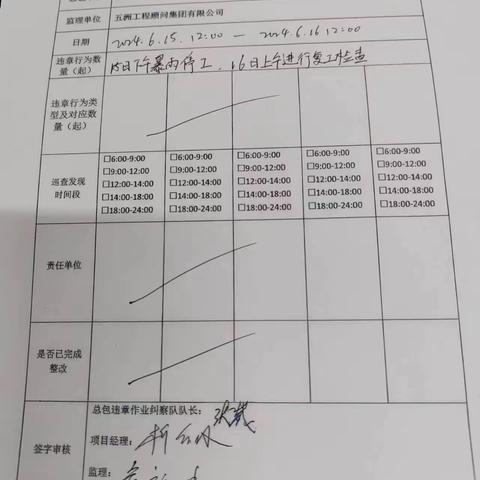 监理单位 五洲工程顾问集团有限公司
日期 2024.6.15.12:00 — 2024.6.16 12:00
违章行为数量（起） 15日下午暴雨停工，16日上午进行复工检查
违章行为类型及对应数量（起）
巡查发现时间段
□6:00-9:00 □6:00-9:00 □6:00-9:00 □6:00-9:00 □6:00-9:00
□9:00-12:00 □9:00-12:00 □9:00-12:00 □9:00-12:00 □9:00-12:00
□12:00-14:00 □12:00-14:00 □12:00-14:00 □12:00-14:00 □12:00-14:00
□14:00-18:00 □14:00-18:00 □14:00-18:00 □14:00-18:00 □14:00-18:00
□18:00-24:00 □18:00-24:00 □18:00-24:00 □18:00-24:00 □18:00-24:00
责任单位
是否已完成整改
签字审核
总包违章作业纠察队队长：
项目经理：
监理：